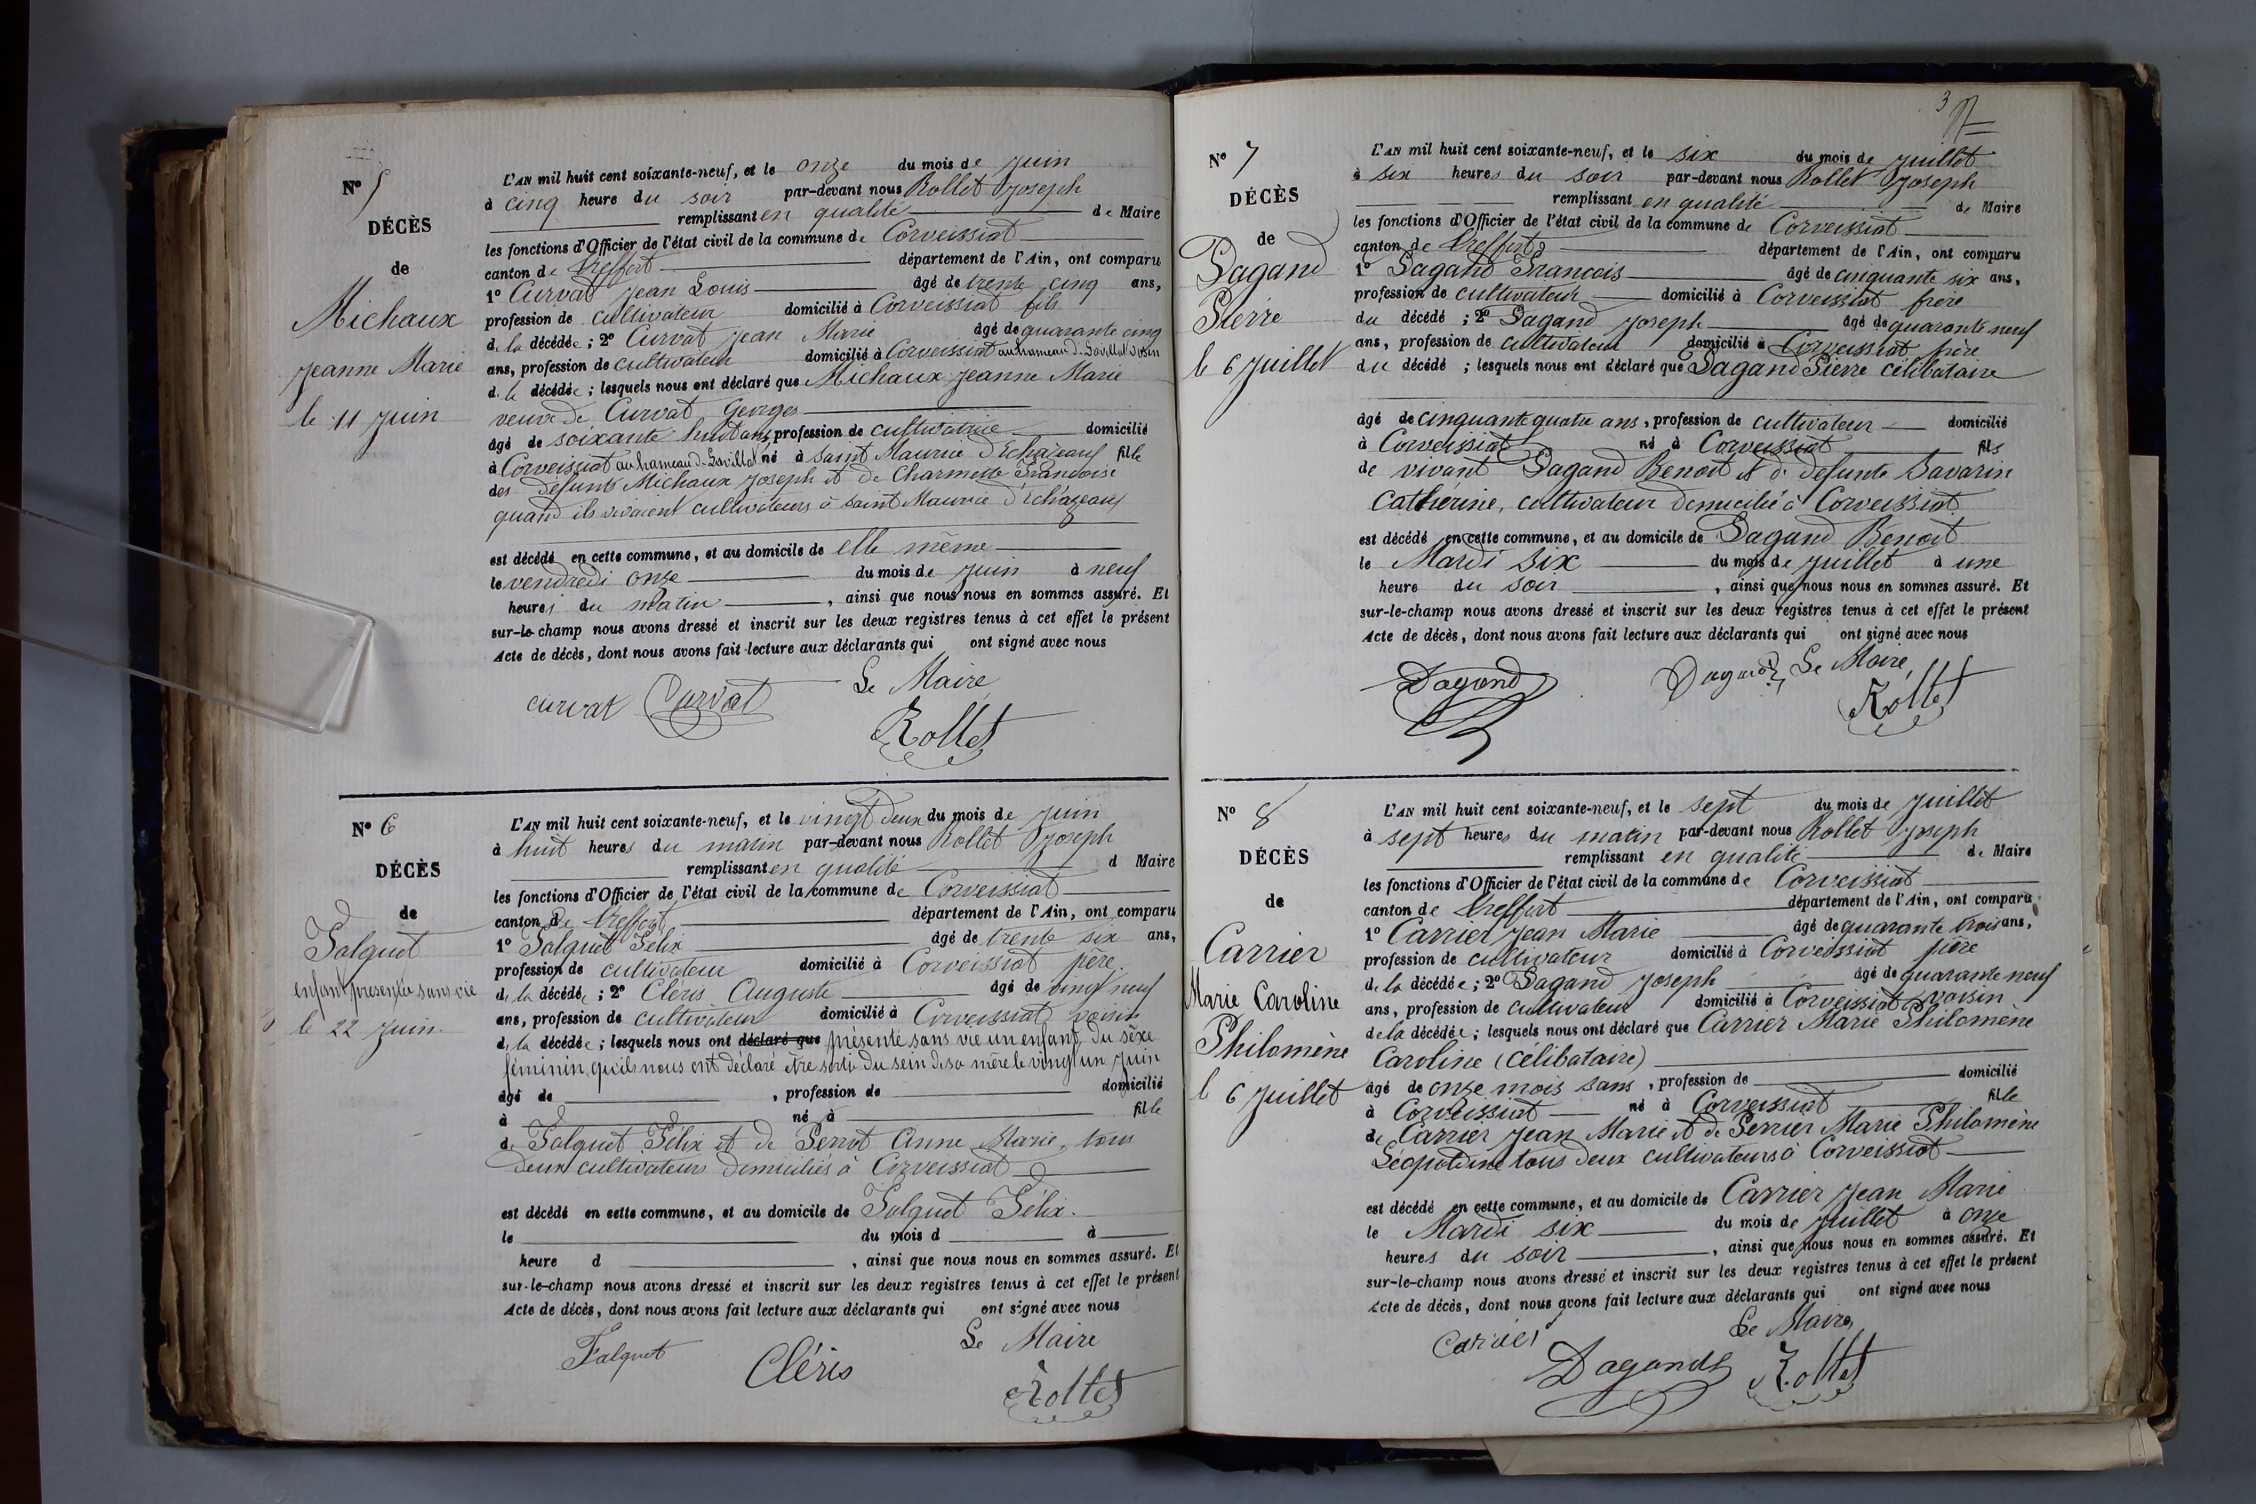 N° 5
DÉCÈS
de
Michaux
Jeanne Marie
le 11 Juin
L'AN mil huit cent soixante-neuf, et le onze du mois de Juin
à cinq heure du soir par-devant nous Rollet Joseph
remplissant en qualité de Maire
les fonctions d'Officier de l'état civil de la commune de Corveissiat
canton de Treffort département de l'Ain, ont comparu
1° Curvat Jean Louis âgé de trente cinq ans,
profession de cultivateur domicilié à Corveissiat fils
de la décédée ; 2° Curvat Jean Marie âgé de quarante cinq
ans, profession de cultivateur domicilié à Corveissiat au hameau de voisin
de la décédée ; lesquels nous ont déclaré que Michaux Jeanne Marie
veuve de Curvat Georges
âgé de soixante huit ans, profession de cultivatrice domicilié
à Corveissiat au hameau de né à saint Maurice d'Echazeaux fille
des défunts Michaux Joseph et de Charmette Françoise
quand ils vivaient cultivateurs à saint Maurice d'Echazeaux
est décédé en cette commune, et au domicile de elle même
le vendredi onze du mois de Juin à neuf
heures du matin , ainsi que nous nous en sommes assuré. Et
sur-le-champ nous avons dressé et inscrit sur les deux registres tenus à cet effet le présent
Acte de décès, dont nous avons fait lecture aux déclarants qui ont signé avec nous
Le Maire
curvat Curvat
Rollet
N° 6
DÉCÈS
de
Falquet
enfant présentée sans vie
le 22 Juin.
L'AN mil huit cent soixante-neuf, et le vingt deux du mois de Juin
à huit heures du matin par-devant nous Rollet Joseph
remplissant en qualité d Maire
les fonctions d'Officier de l'état civil de la commune de Corveissiat
canton de Treffort département de l'Ain, ont comparu
1° Falquet Félix âgé de trente six ans,
profession de cultivateur domicilié à Corveissiat père.
de la décédée ; 2° Cléris Auguste âgé de vingt neuf
ans, profession de cultivateur domicilié à Corveissiat voisin
de la décédée ; lesquels nous ont déclaré que présenté sans vie un enfant du sèxe
féminin, qu'ils nous ont déclaré être sorti du sein de sa mère le vingt un Juin
âgé de , profession de domicilié
à né à fille
de Falquet Félix et de Perrot Anne Marie, tous
deux cultivateurs domiciliés à Corveissiat
est décédé en cette commune, et au domicile de Falquet Félix.
le du mois d à
heure d , ainsi que nous nous en sommes assuré. Et
sur-le-champ nous avons dressé et inscrit sur les deux registres tenus à cet effet le présent
Acte de décès, dont nous avons fait lecture aux déclarants qui ont signé avec nous
Le Maire
Falquet Cléris
Rollet
3
N° 7
DÉCÈS
de
Dagand
Pierre
le 6 Juillet
L'AN mil huit cent soixante-neuf, et le six du mois de Juillet
à six heures du soir par-devant nous Rollet Joseph
remplissant en qualité de Maire
les fonctions d'Officier de l'état civil de la commune de Corveissiat
canton de Treffort département de l'Ain, ont comparu
1° Dagand François âgé de cinquante six ans,
profession de cultivateur domicilié à Corveissiat frere
du décédé ; 2° Dagand Joseph âgé de quarante neuf
ans, profession de cultivateur domicilié à Corveissiat frère
du décédé ; lesquels nous ont déclaré que Dagand Pierre célibataire
âgé de cinquante quatre ans, profession de cultivateur domicilié
à Corveissiat né à Corveissiat fils
de vivant Dagand Benoit et de défunte Savarin
Catherine, cultivateur domicilié à Corveissiat
est décédé en cette commune, et au domicile de Dagand Benoit
le Mardi six du mois de Juillet à une
heure du soir , ainsi que nous nous en sommes assuré. Et
sur-le-champ nous avons dressé et inscrit sur les deux registres tenus à cet effet le présent
Acte de décès, dont nous avons fait lecture aux déclarants qui ont signé avec nous
Dagand Dagand Le Maire,
Rollet
N° 8
DÉCÈS
de
Carrier
Marie Caroline
Philomène
le 6 Juillet
L'AN mil huit cent soixante-neuf, et le sept du mois de Juillet
à sept heures du matin par-devant nous Rollet Joseph
remplissant en qualité de Maire
les fonctions d'Officier de l'état civil de la commune de Corveissiat
canton de Treffort département de l'Ain, ont comparu
1° Carrier Jean Marie âgé de quarante trois ans,
profession de cultivateur domicilié à Corveissiat père
de la décédée ; 2° Dagand Joseph âgé de quarante neuf
ans, profession de cultivateur domicilié à Corveissiat voisin
de la décédée ; lesquels nous ont déclaré que Carrier Marie Philomène
Caroline (célibataire)
âgé de onze mois sans, profession de domicilié
à Corveissiat né à Corveissiat fille
de Carrier Jean Marie et de Perrier Marie Philomène
Léopoldine tous deux cultivateurs à Corveissiat
est décédé en cette commune, et au domicile de Carrier Jean Marie
le Mardi six du mois de Juillet à onze
heures du soir , ainsi que nous nous en sommes assuré. Et
sur-le-champ nous avons dressé et inscrit sur les deux registres tenus à cet effet le présent
Acte de décès, dont nous avons fait lecture aux déclarants qui ont signé avec nous
Le Maire,
Carrier
Dagand Rollet